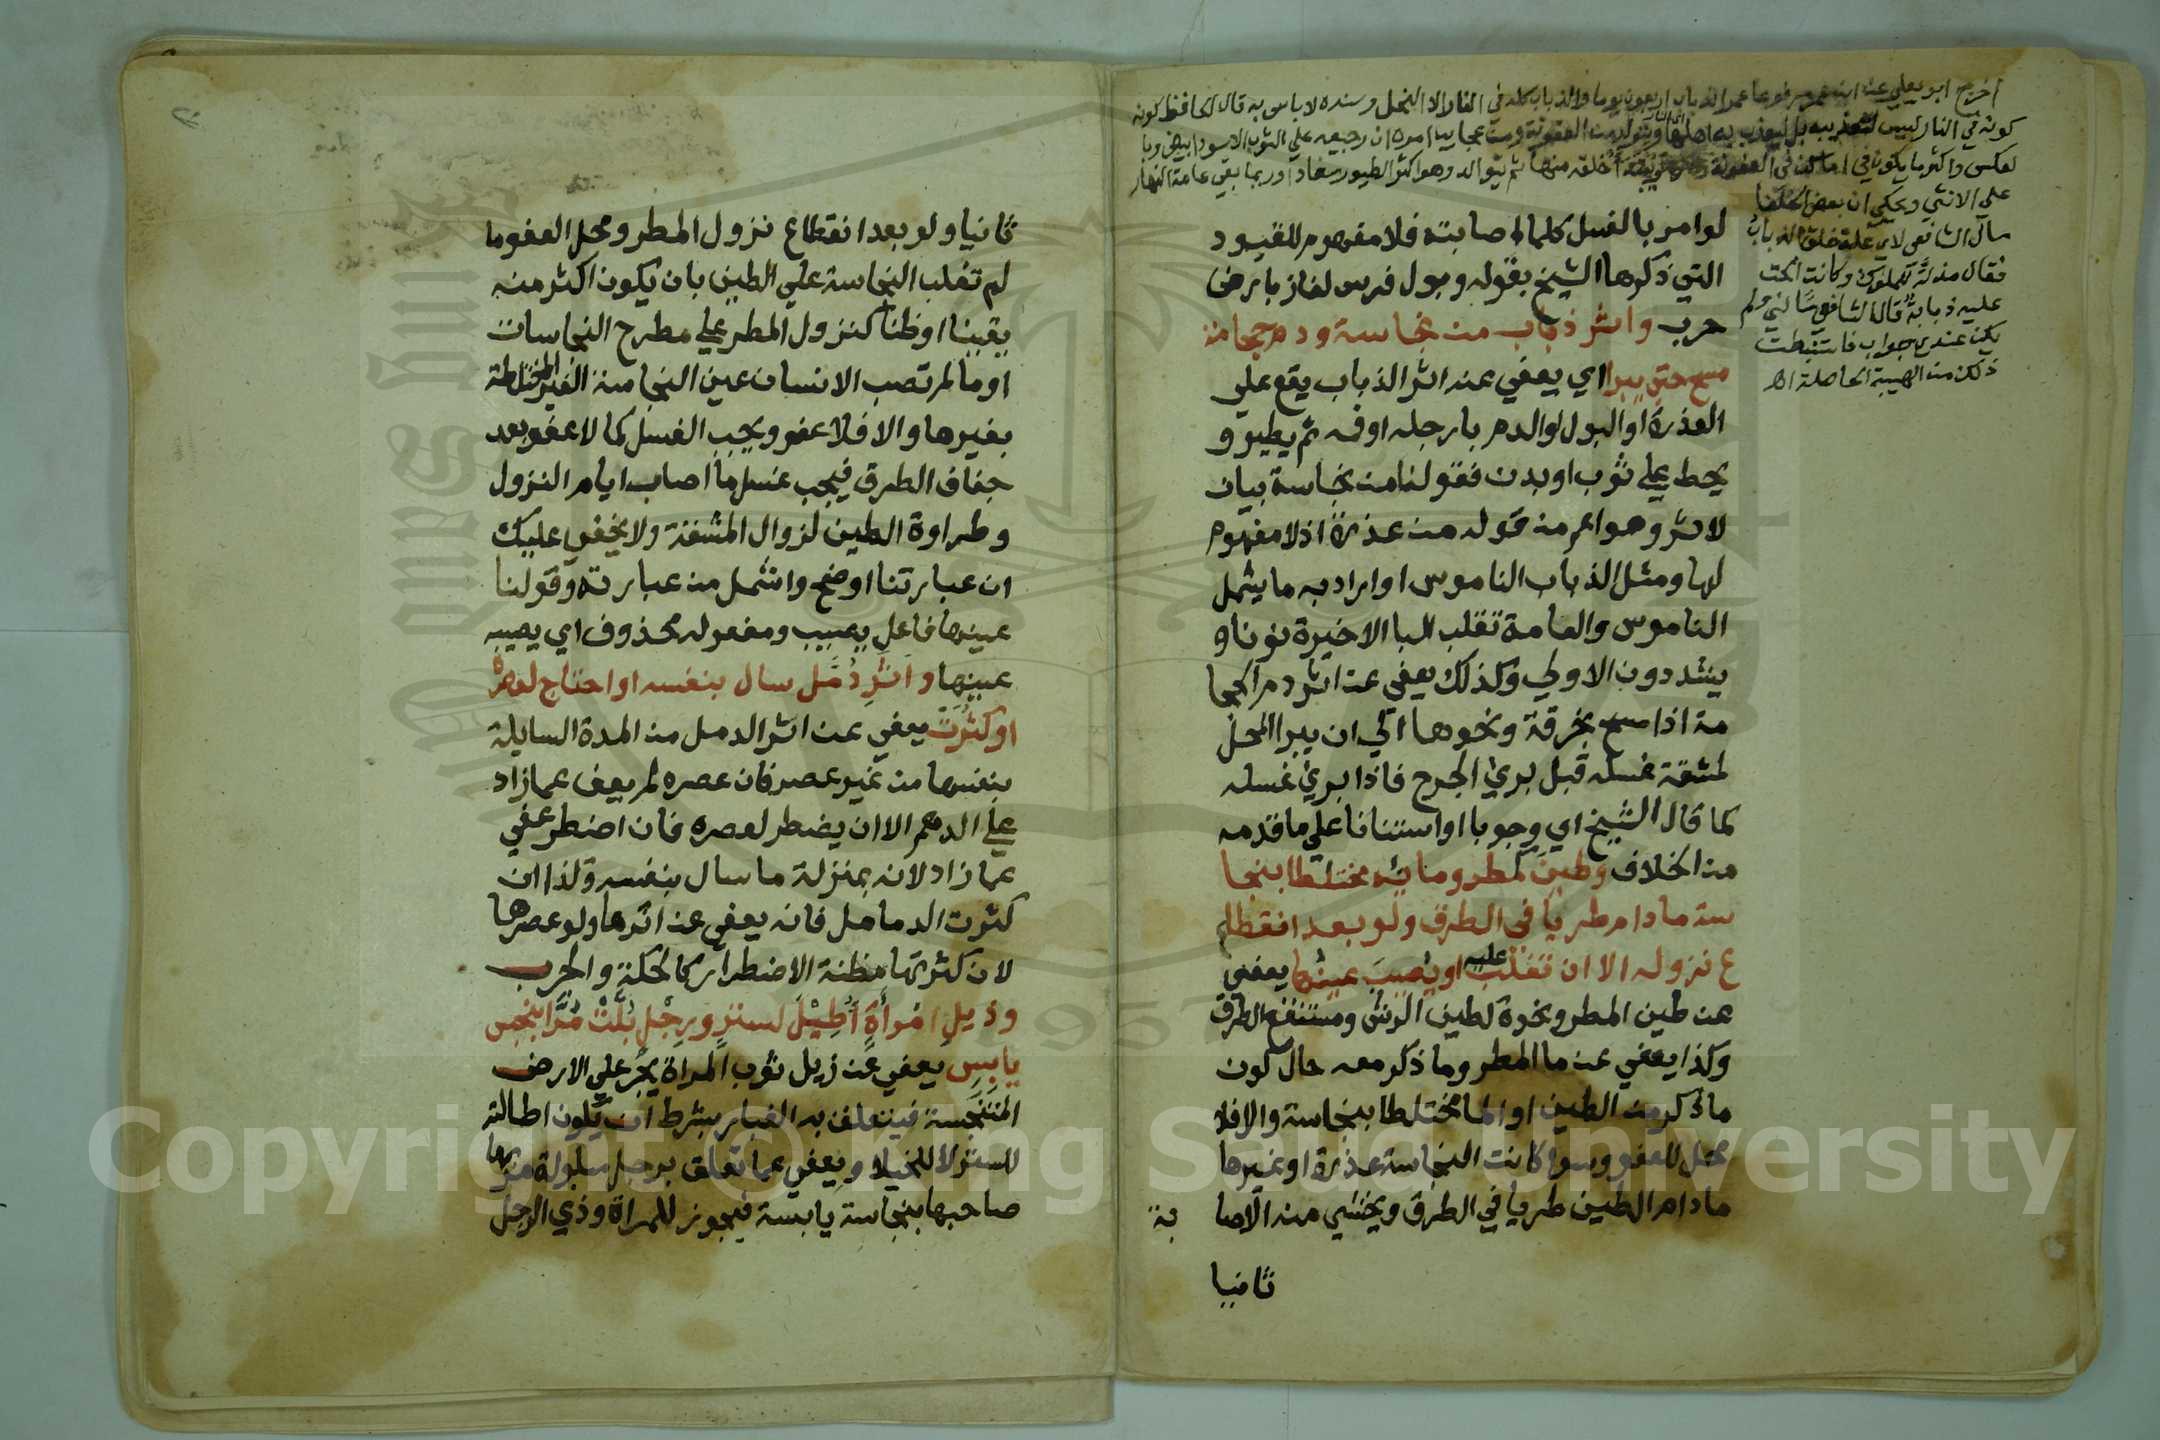 اخرج ابو يعلي عن ابن عمر مرفوعا عمر الذباب اربعون يوما والذباب كله في النار الا النحل وسنده لا باس به قال الحافظ كونه
كونه في النار ليس لتعذيبه بل ليعذب به اهلها ويتولد من العفونة ومن عجايب امره ان رجيعه علي الثوب الاسود ابيض وبا
لعكس واكثر ما يكون في اماكن العفونة خلقه منها ثم يتوالد وهو اكثر الطيور سفادا وربما بقي عامة النهار
علي الانثي ويحكي ان بعض الخلفا
سال الشافعي لاي علة خلق الذباب
فقال مذلة للملوك وكانت الحت
عليه ذبابة قال الشافعي سالني ولم
يكن عندي جواب فاستنبطت
ذلك من الهيبة الحاصلة اه
لو امر بالغسل كلما اصابته فلا مفهوم للقيود
التي ذكرها الشيخ بقوله وبول فرس لغاز بارض
حرب واثر ذباب من نجاسة ودم حجامة
مسح حتي يبرا اي يعفي عن اثر الذباب يقع علي
العذرة او البول او الدم بارجله او فمه ثم يطير و
يحط علي ثوب او بدن فقولنا من نجاسة بيان
لاثر وهو اعم من قوله من عذرة اذ لا مفهوم
لها ومثل الذباب الناموس او اراد به ما يشمل
الناموس والعامة تقلب البا الاخيرة نونا و
يشددون الاولي وكذلك يعفي عن اثر دم الحجا
مة اذا مسح بخرقة ونحوها الي ان يبرا المحل
لمشقة غسله قبل بري الجرح فاذا بري غسله
كما قال الشيخ اي وجوبا او استنانا علي ما قدمه
من الخلاف وطين كمطر ومائه مختلطا بنجا
سة ما دام طريا في الطرق ولو بعد انقطا
ع نزوله الا ان تغلب عليه او يصيب عينها يعفي
عن طين المطر ونحوه كطين الرش ومستنقع الطرق
وكذا يعفي عن ما المطر وما ذكر معه حال كون
ما ذكر من الطين او الما مختلطا بنجاسة والا فلا
محل للعفو وسوا كانت النجاسة عذرة او غيرها
ما دام الطين طريا في الطرق ويخشي منه الاصا بة
ثانيا
ثانيا ولو بعد انقطاع نزول المطر ومحل العفو ما
لم تغلب النجاسة علي الطين بان يكون اكثر منه
يقينا او ظنا كنزول المطر علي مطرح النجاسات
او ما لم تصب الانسان عين النجاسة الغير المختلطة
بغيرها والا فلا عفو ويجب الغسل كما لا عفو بعد
جفاف الطرق فيجب غسل ما اصاب ايام النزول
وطراوة الطين لزوال المشقة ولا يخفي عليك
ان عبارتنا اوضح واشمل من عبارته وقولنا
عينها فاعل يصيب ومفعوله محذوف اي يصيبه
عينها واثر دمل سال بنفسه او احتاج لعصره
او كثرت يعفي عن اثر الدمل من المدة السايلة
بنفسها من غير عصر فان عصره لم يعف عما زاد
علي الدرهم الا ان يضطر لعصره فان اضطر عفي
عما زاد لانه بمنزلة ما سال بنفسه وكذا ان
كثرت الدمامل فانه يعفي عن اثرها ولو عصرها
لان كثرتها مظنة الاضطرار كالحكة والجرب
وذيل امراة اطيل لستر ورجل بلت مرا بنجس
يابس يعفي عن ذيل ثوب المراة يجر علي الارض
المتنجسة فيتعلق به الغبار بشرط ان يكون اطالته
للستر لا للخيلا ويعفي عما تعلق برجل مبلولة مر بها
صاحبها بنجاسة يابسة فيجوز للمراة وذي الرجل
Copyright © King Saud University
1957